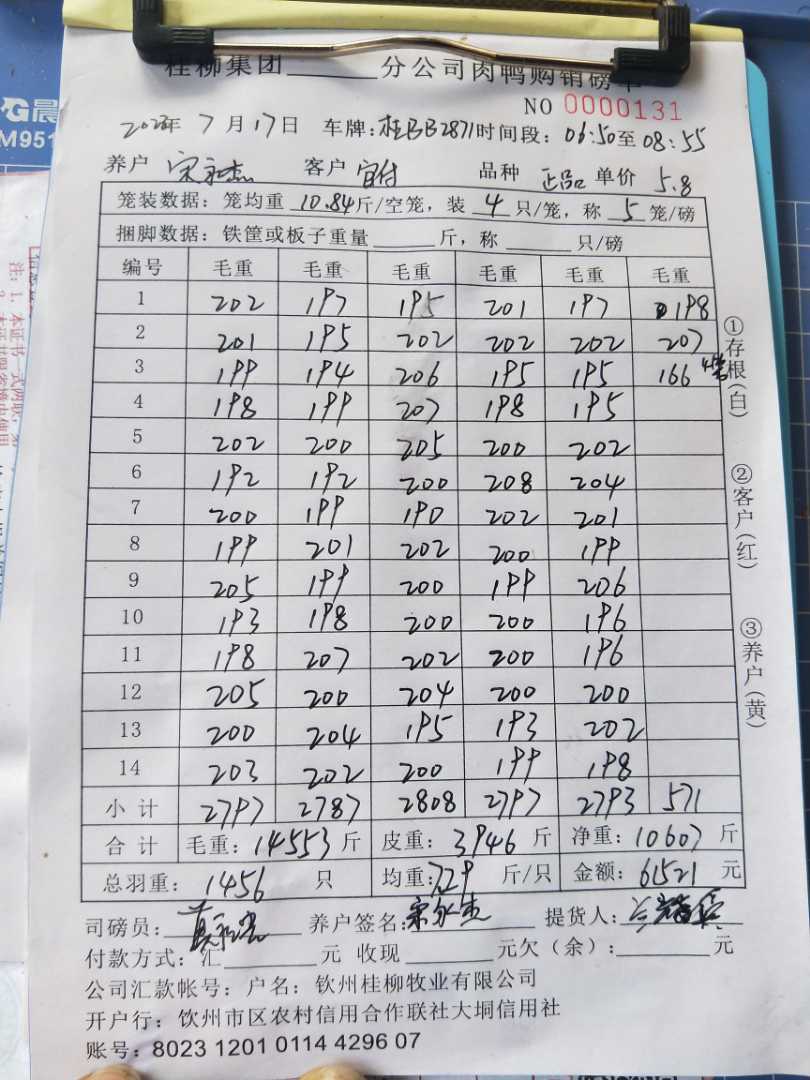 桂柳集团______分公司肉鸭购销磅单
NO 0000131
2023年 7月17日 车牌:桂BB2871 时间段:06:50至08:55
养户 宋永杰 客户 宜付 品种 正品 单价 5.8
笼装数据:笼均重 10.84斤/空笼,装 4 只/笼,称 5 笼/磅
捆脚数据:铁筐或板子重量______斤,称______只/磅
编号 毛重 毛重 毛重 毛重 毛重 毛重
1 202 197 195 201 197 198
2 201 195 202 202 202 207
3 199 194 206 195 195 166 4笼
4 198 199 207 198 195
5 202 200 205 200 202
6 192 192 200 208 204
7 200 199 190 202 201
8 199 201 202 200 199
9 205 199 200 199 206
10 193 198 200 200 196
11 198 207 202 200 196
12 205 200 204 200 200
13 200 204 195 193 202
14 203 202 200 199 198
小计 2797 2787 2808 2797 2793 571
合计 毛重:14553斤 皮重:3946斤 净重:10607斤
总羽重:1456 只 均重:7.29 斤/只 金额:61521元
司磅员: 养户签名:宋永杰 提货人:
付款方式:汇______元 收现______元欠(余):______元
公司汇款帐号:户名:钦州桂柳牧业有限公司
开户行:钦州市区农村信用合作联社大垌信用社
账号:8023 1201 0114 4296 07
①存根(白)
②客户(红)
③养户(黄)
G晨
M951
注:1.本证书一式两联,